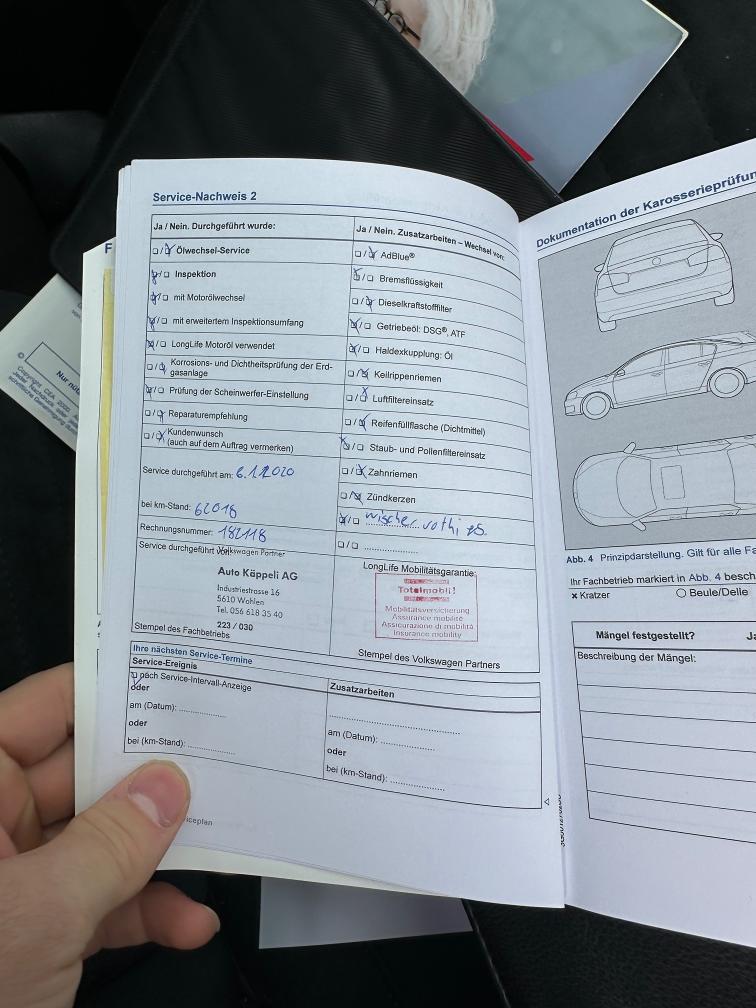 Service-Nachweis 2
Ja / Nein. Durchgeführt wurde:
Ölwechsel-Service
Inspektion
mit Motorölwechsel
mit erweitertem Inspektionsumfang
LongLife Motoröl verwendet
Korrosions- und Dichtheitsprüfung der Erd-
gasanlage
Prüfung der Scheinwerfer-Einstellung
Reparaturempfehlung
Kundenwunsch
(auch auf dem Auftrag vermerken)
Service durchgeführt am: 6.1.2020
bei km-Stand: 62018
Rechnungsnummer: 182118
Service durchgeführt von:
Volkswagen Partner
Auto Käppeli AG
Industriestrasse 16
5610 Wohlen
Tel. 056 618 35 40
223 / 030
Stempel des Fachbetriebs
Ja / Nein. Zusatzarbeiten – Wechsel von:
AdBlue®
Bremsflüssigkeit
Dieselkraftstofffilter
Getriebeöl: DSG®, ATF
Haldexkupplung: Öl
Keilrippenriemen
Luftfiltereinsatz
Reifenfüllflasche (Dichtmittel)
Staub- und Pollenfiltereinsatz
Zahnriemen
Zündkerzen
wischer
LongLife Mobilitätsgarantie:
Totalmobil!
Mobilitätsversicherung
Assurance mobilité
Assicurazione di mobilità
Insurance mobility
Stempel des Volkswagen Partners
Ihre nächsten Service-Termine
Service-Ereignis
nach Service-Intervall-Anzeige
oder
am (Datum):
oder
bei (km-Stand):
Zusatzarbeiten
am (Datum):
oder
bei (km-Stand):
iceplan
Dokumentation der Karosserieprüfun
Abb. 4 Prinzipdarstellung. Gilt für alle Fa
Ihr Fachbetrieb markiert in Abb. 4 besch
× Kratzer
○ Beule/Delle
Mängel festgestellt? Ja
Beschreibung der Mängel: